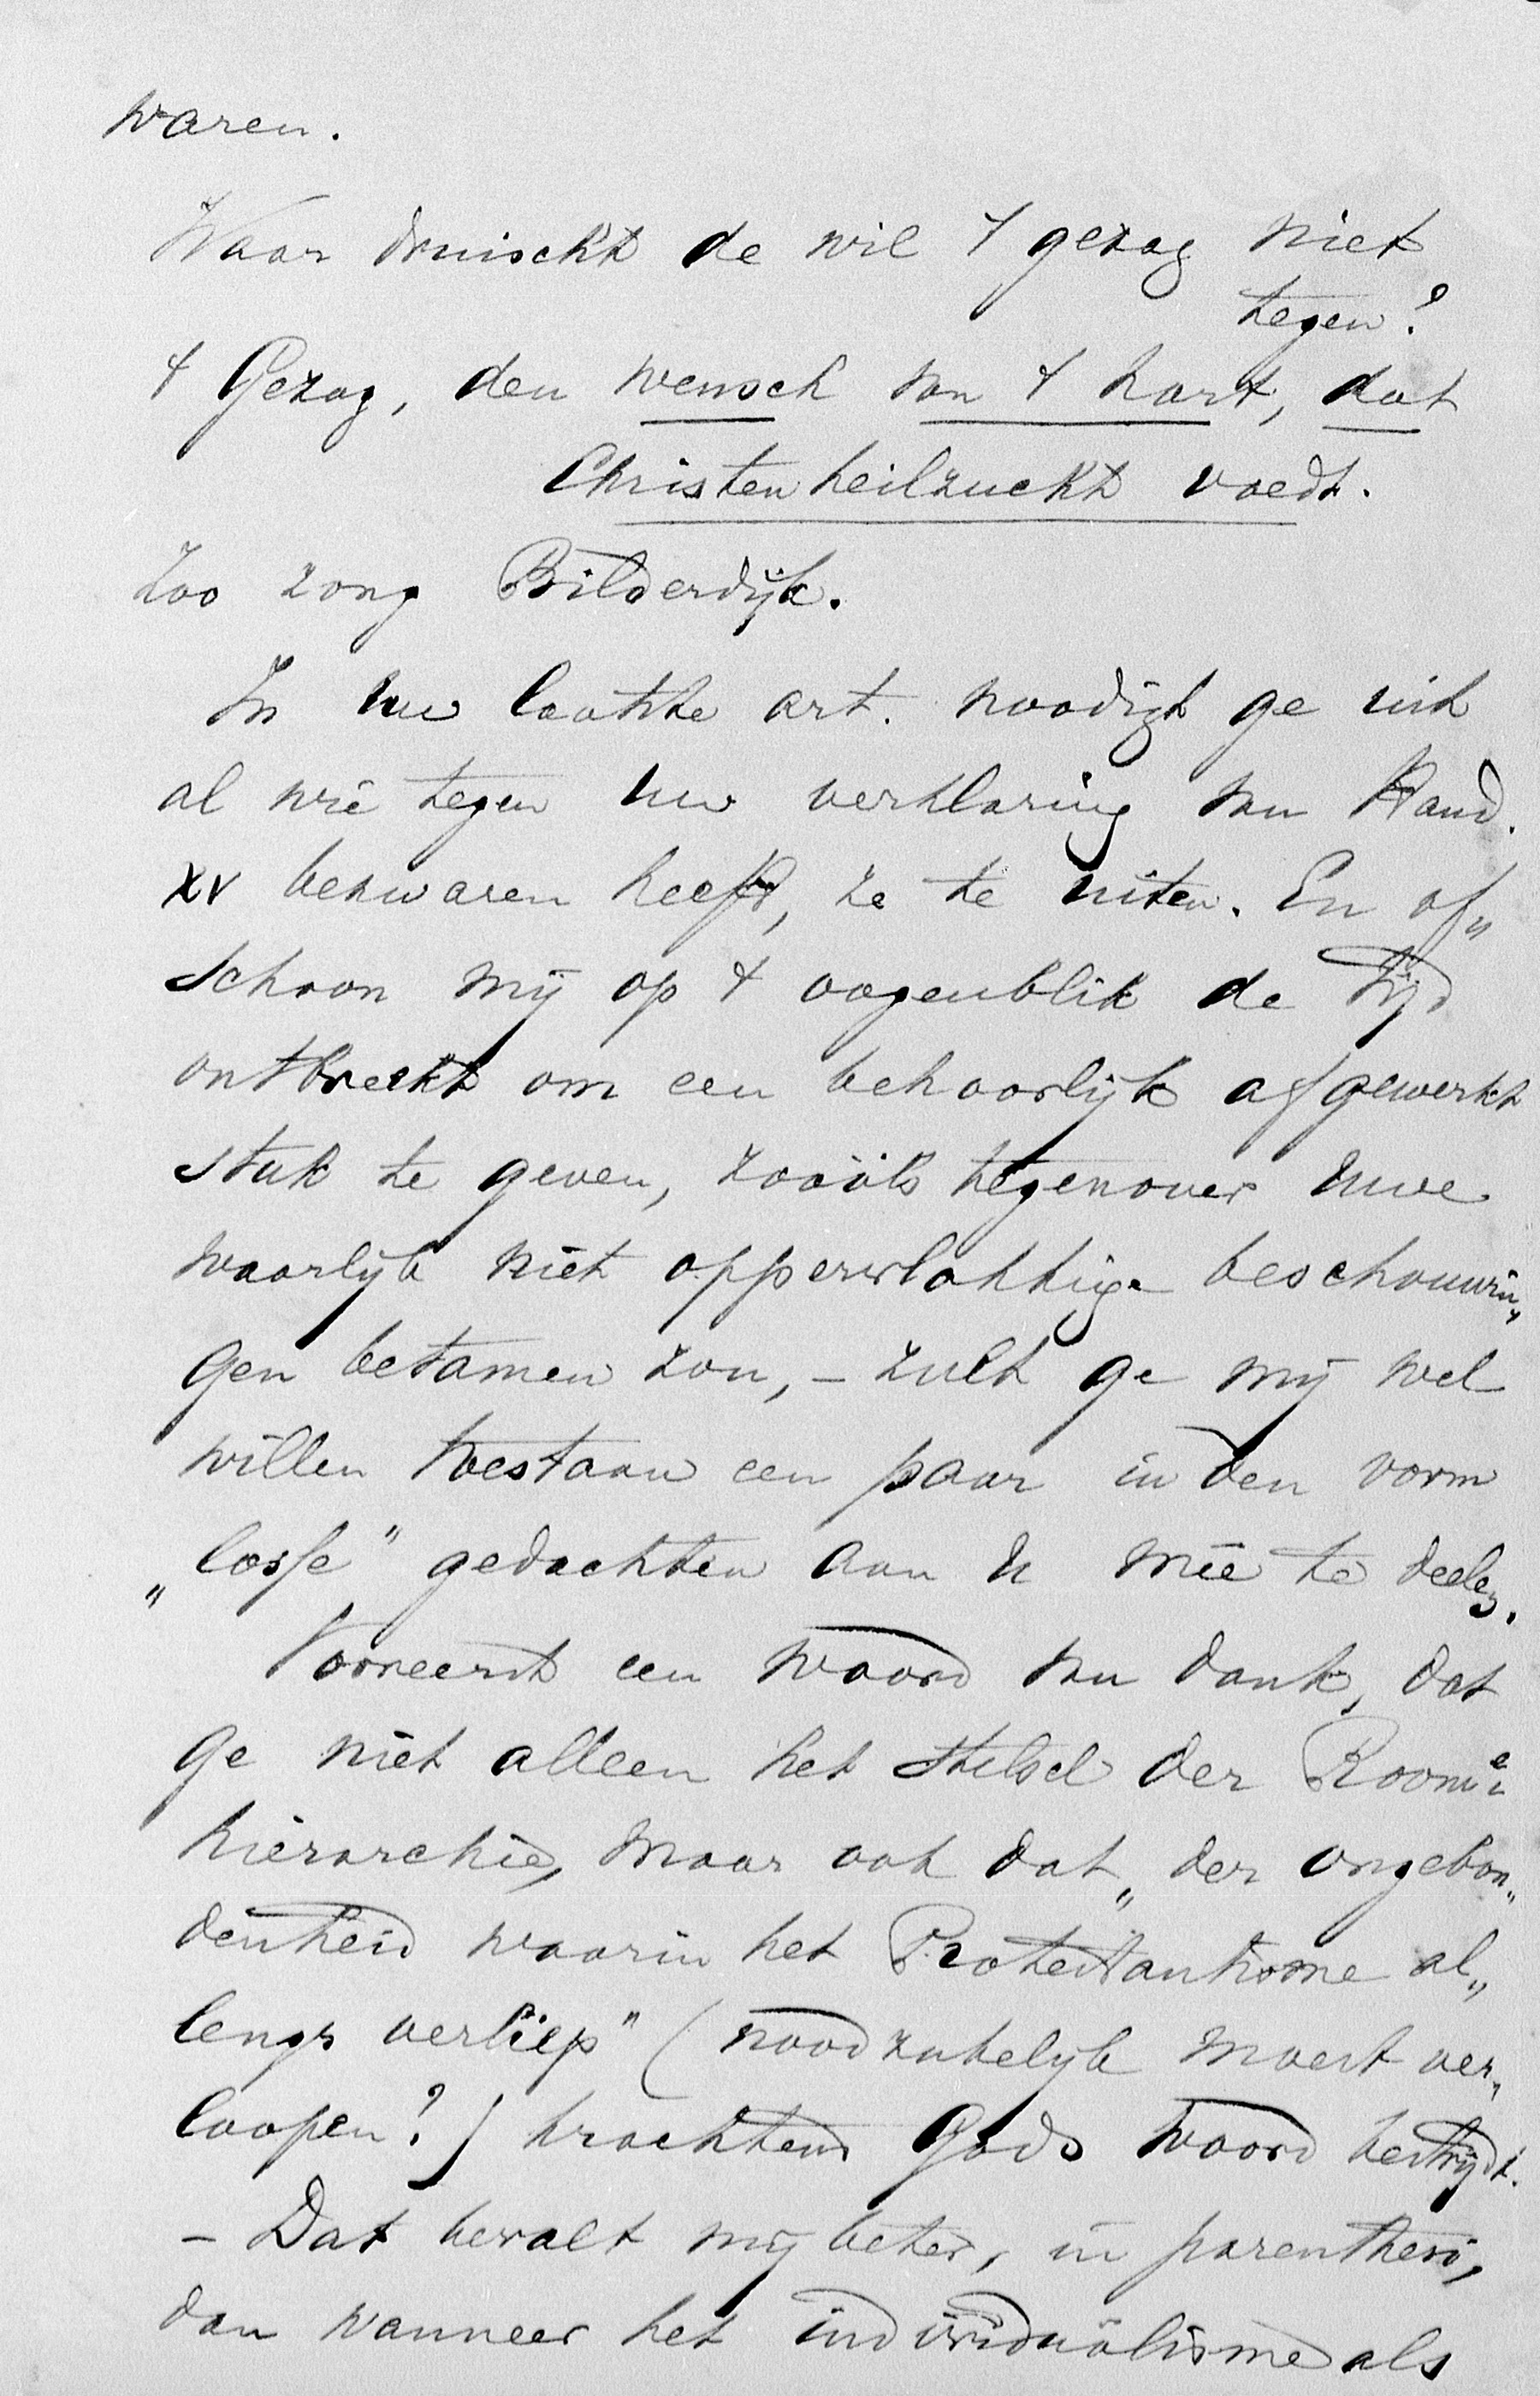 waren.
Waar druischt de wil 't gezag niet
tegen?
't Gezag, den wensch van 't hart, dat
Christen heilzucht voedt.
Zoo zong Bilderdijk.
In uw laatste art. noodigt ge uit
al wie tegen uw verklaring van Hand.
XV bezwaren heeft, ze te uiten. En of„
schoon mij op 't oogenblik de tijd
ontbreekt om een behoorlijk afgewerkt
stuk te geven, zooals tegenover uwe
waarlijk niet oppervlakkige beschouwin„
gen betamen zou, – zult ge mij wel
willen toestaan een paar in den vorm
„losse" gedachten aan u mee te deelen.
Vooreerst een woord van dank, dat
ge niet alleen het stelsel der Roomse
hierarchie, maar ook dat „der ongebon„
denheid waarin het Protestantisme al„
lengs verliep" (noodzakelijk moest ver„
loopen?) krachtens Gods woord bestrijdt.
– Dat bevalt mij beter, in parenthesi,
dan wanneer het individualisme als